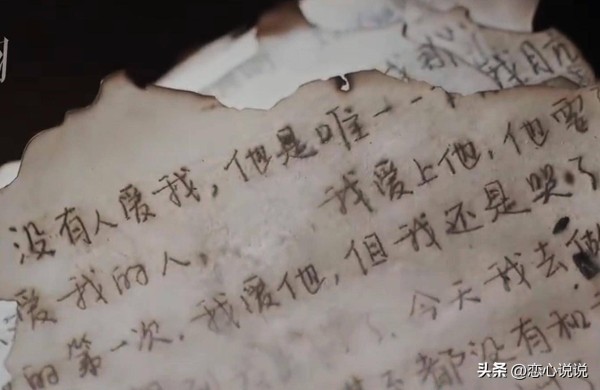 没有人爱我，他是唯一一
爱我的人，我爱上他，他要
的第一次，我爱他，但我还是哭了
了，今天我去做
都没有和
头条 @恋心说说